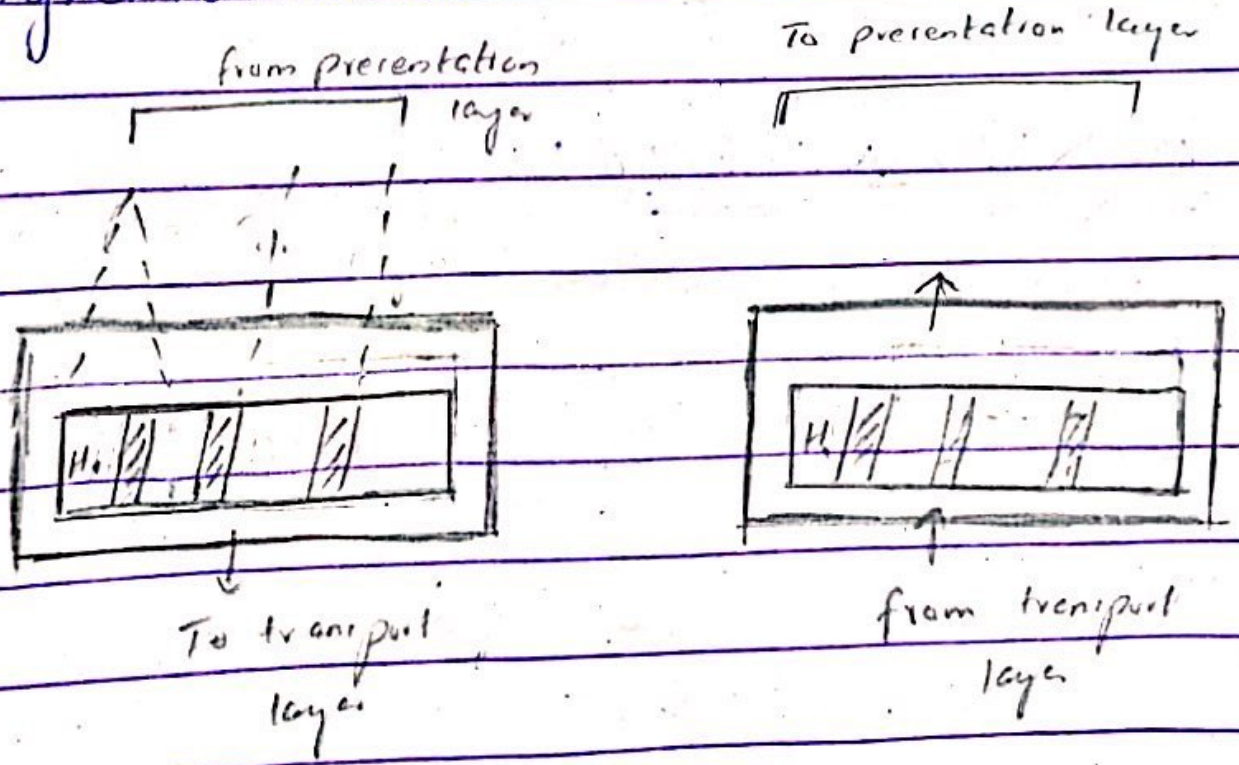 from presentation
layer
To presentation layer
H
H
To transport
layer
from transport
layer